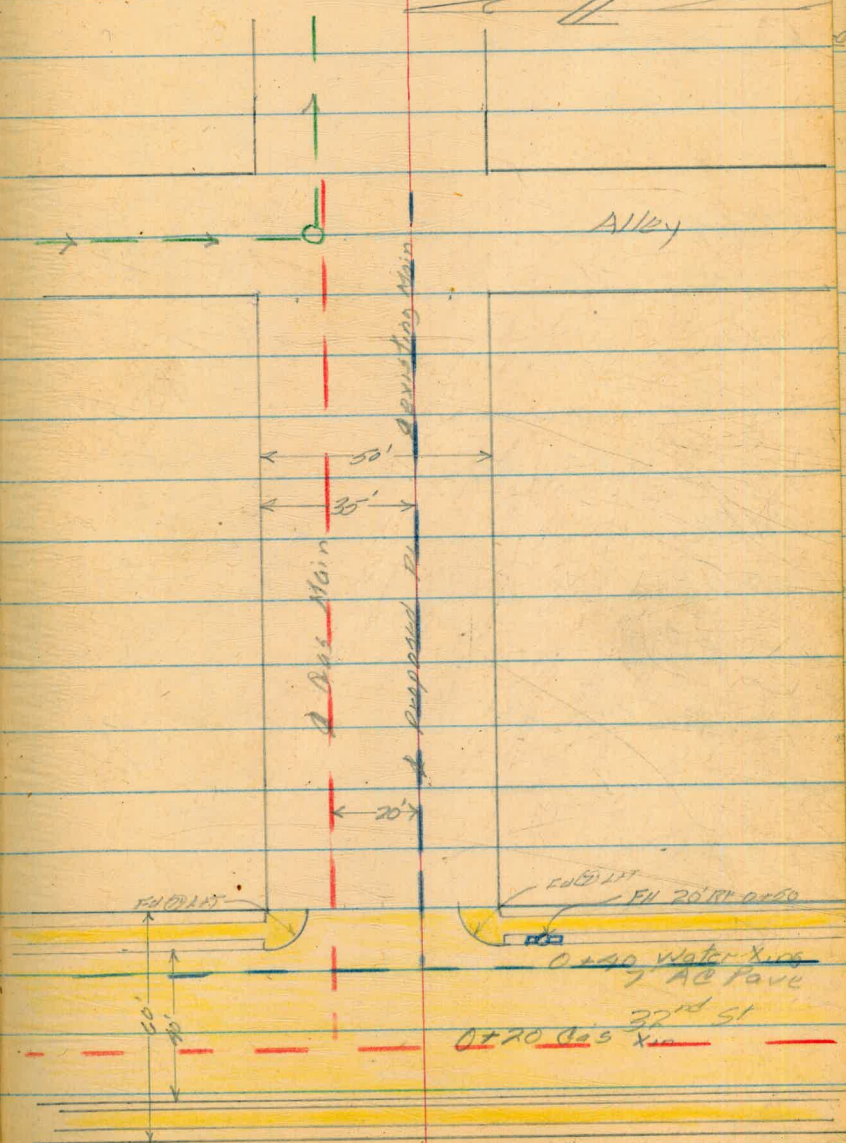 Alley
existing Main
50'
35'
℄ Gas Main
℄ Proposed
20'
FH 20' Rt 0+50
0+40 Water Xing
AC Pave
32nd St
0+20 Gas Xin
60'
40'